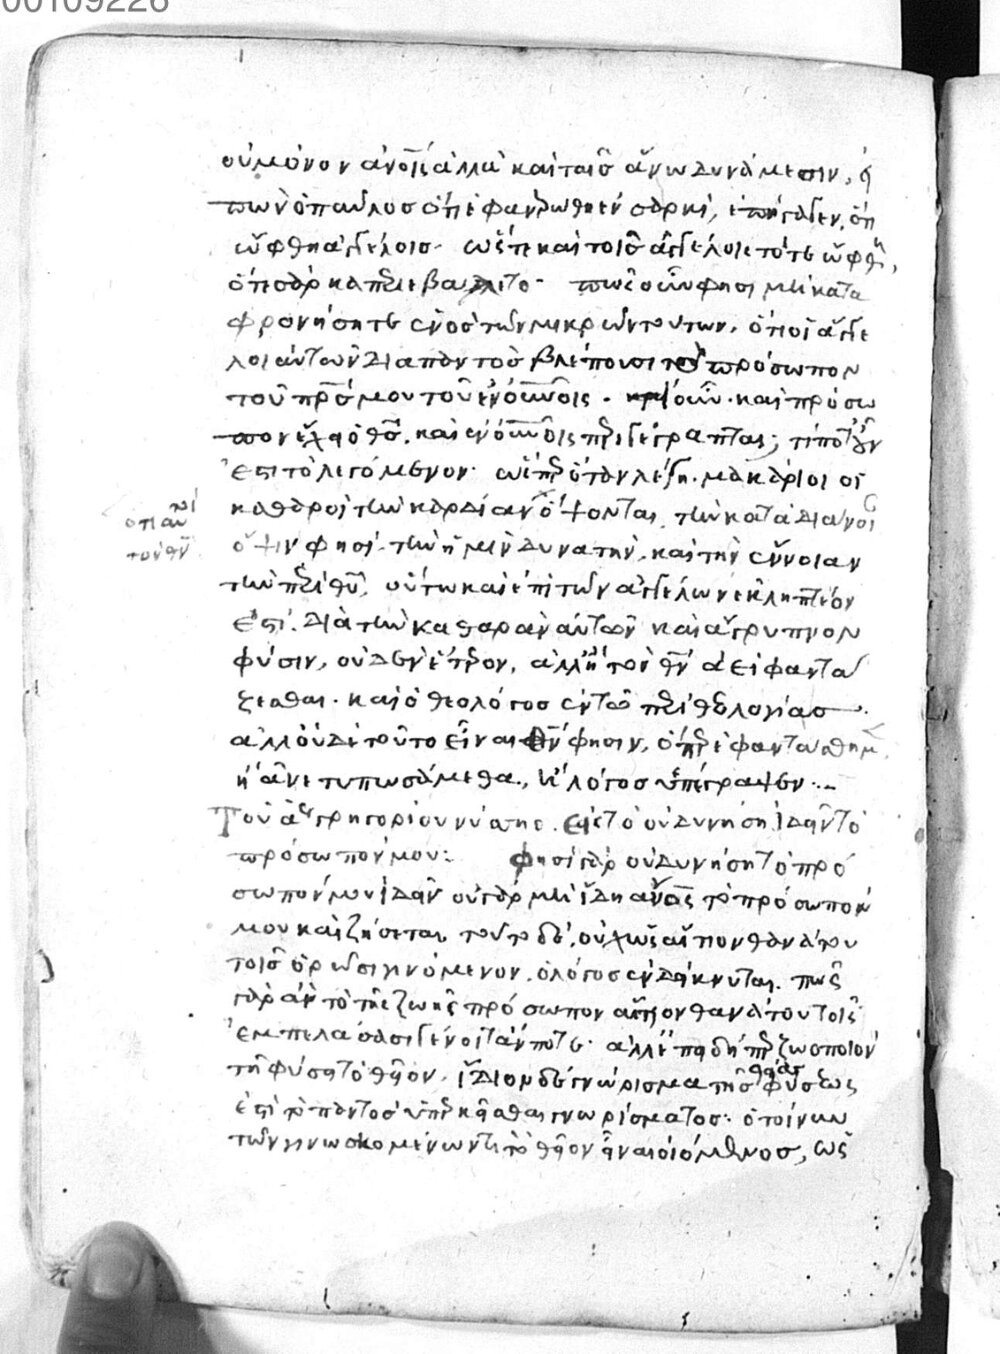 00109226
οὐ μόνον ἀνοις ἀλλὰ καὶ ταῖς ἄνω δυνάμεσιν, εἰ
πὼν ὁ παῦλος ὅτι ἐφανερώθη ἐν σαρκὶ, ἐπήγαγεν, ὅτι
ὤφθη ἀγγέλοις. ὥστε καὶ τοῖς ἀγγέλοις τότε ὤφθη,
ὅτε σάρκα περιεβάλλετο. πῶς οὖν φησι μὴ κατα
φρονήσητε ἑνὸς τῶν μικρῶν τούτων, ὅτι οἱ ἄγγε
λοι αὐτῶν διαπαντὸς βλέπουσι τὸ πρόσωπον
τοῦ πρς μου τοῦ ἐν οὐνοις. τί οὖν. καὶ πρόσω
πον ἔχει ὁ θς, καὶ ἐν οὐνοις περιγέγραπται; τί ποτ οὖν
ἐστι τὸ λεγόμενον. ὥσπερ ὅταν λέγη. μακάριοι οἱ
καθαροὶ τὴν καρδίαν ὄψονται, τὴν κατὰ διάνοι
ὄψιν φησὶ, τὴν ἡμῖν δυνατὴν, καὶ τὴν ἔννοιαν
τὴν περὶ θυ, οὕτω καὶ ἐπὶ τῶν ἀγγέλων ἐκληπτέον
ἐστί. διὰ τὴν καθαρὰν αὐτῶν καὶ ἄγρυπνον
φύσιν, οὐδὲν ἕτερον, ἀλλ ἢ τὸν θν ἀεὶ φαντά
ζεσθαι. καὶ ὁ θεολόγος ἐν τῶ περὶ θεολογίας
ἀλλ οὐδὲ τοῦτο εἶναι θν φησιν, ὅπερ ἐφαντάσθημεν
ἢ ἀνετυπωσάμεθα, ἢ λόγος ὑπέγραψεν
Τοῦ ἁγ γρηγορίου νύσης. εἰς τὸ οὐ δυνήση ἰδεῖν τὸ
πρόσωπόν μου: φησὶ γὰρ οὐ δυνήση τὸ πρό
σωπόν μου ἰδεῖν οὐ γὰρ μὴ ἴδη ἄνος τὸ πρόσωπόν
μου καὶ ζήσεται. τοῦτο δὲ, οὐχ ὡς αἴτιον θανάτου
τοῖς ὁρῶσι γινόμενον, ὁ λόγος ἐνδείκνυται. πῶς
γὰρ ἂν τὸ τῆς ζωῆς πρόσωπον αἴτιον θανάτου τοῖς
ἐμπελάσασι γένοιτ ἄν ποτε. ἀλλ ἐπειδὴ περ ζωοποιὸν
τῆ φύσει τὸ θεῖον, ἴδιον δὲ γνώρισμα τῆς θείας φύσεως
ἐστὶ τὸ παντὸς ὑπερκεῖσθαι γνωρίσματος. ὁ τοίνυν
τῶν γινωσκομένων τι τὸ θεῖον εἶναι οἰόμενος, ὡς
ὅτι αὐτοὶ
τὸν θν